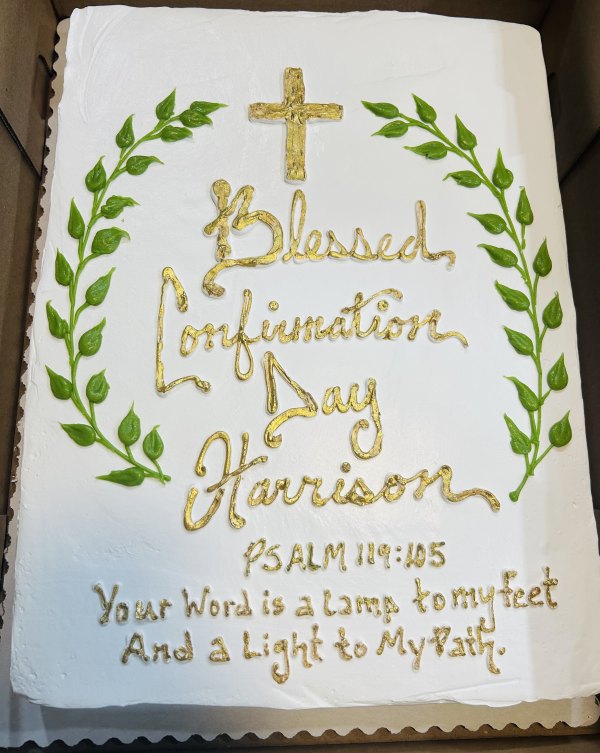 Blessed
Confirmation
Day
Harrison
PSALM 119:105
Your Word is a Lamp to my feet
And a Light to My Path.